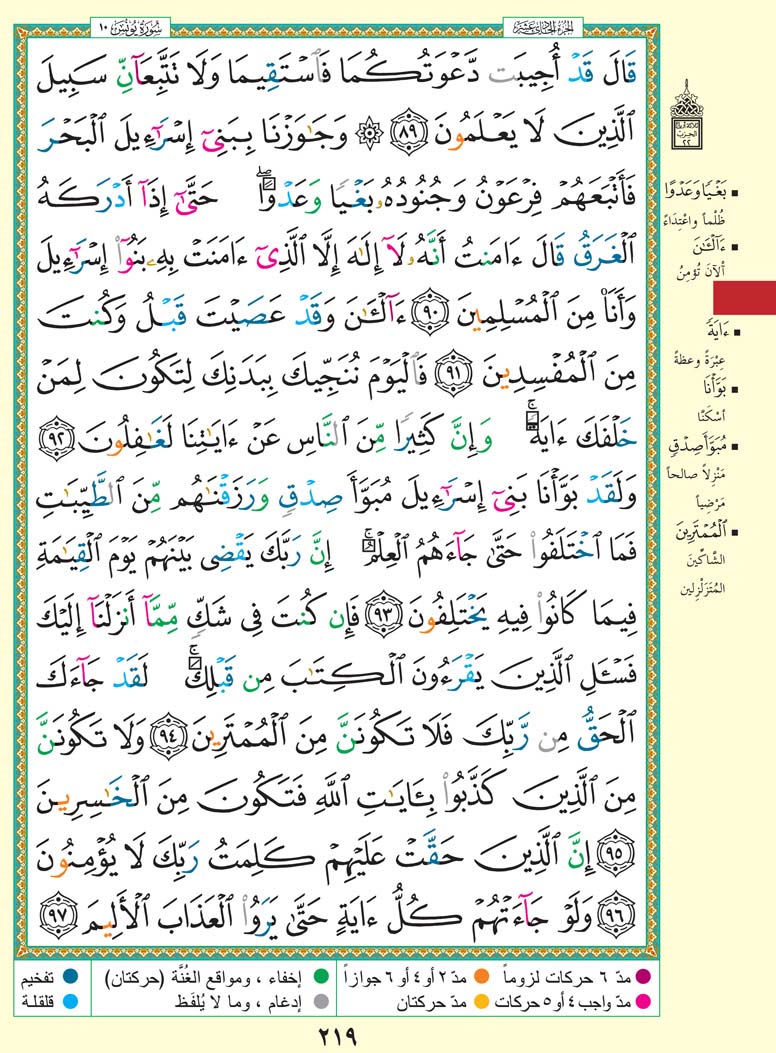 سُورَةُ يُونُسَ ١٠
الجُزءُ الحَادِي عَشَرَ
قَالَ قَدۡ أُجِيبَت دَّعۡوَتُكُمَا فَٱسۡتَقِيمَا وَلَا تَتَّبِعَآنِّ سَبِيلَ
ٱلَّذِينَ لَا يَعۡلَمُونَ ٨٩ ۞ وَجَٰوَزۡنَا بِبَنِيٓ إِسۡرَٰٓءِيلَ ٱلۡبَحۡرَ
فَأَتۡبَعَهُمۡ فِرۡعَوۡنُ وَجُنُودُهُۥ بَغۡيٗا وَعَدۡوًاۖ حَتَّىٰٓ إِذَآ أَدۡرَكَهُ
ٱلۡغَرَقُ قَالَ ءَامَنتُ أَنَّهُۥ لَآ إِلَٰهَ إِلَّا ٱلَّذِيٓ ءَامَنَتۡ بِهِۦ بَنُوٓاْ إِسۡرَٰٓءِيلَ
وَأَنَا۠ مِنَ ٱلۡمُسۡلِمِينَ ٩٠ ءَآلۡـَٰٔنَ وَقَدۡ عَصَيۡتَ قَبۡلُ وَكُنتَ
مِنَ ٱلۡمُفۡسِدِينَ ٩١ فَٱلۡيَوۡمَ نُنَجِّيكَ بِبَدَنِكَ لِتَكُونَ لِمَنۡ
خَلۡفَكَ ءَايَةٗۚ وَإِنَّ كَثِيرٗا مِّنَ ٱلنَّاسِ عَنۡ ءَايَٰتِنَا لَغَٰفِلُونَ ٩٢
وَلَقَدۡ بَوَّأۡنَا بَنِيٓ إِسۡرَٰٓءِيلَ مُبَوَّأَ صِدۡقٖ وَرَزَقۡنَٰهُم مِّنَ ٱلطَّيِّبَٰتِ
فَمَا ٱخۡتَلَفُواْ حَتَّىٰ جَآءَهُمُ ٱلۡعِلۡمُۚ إِنَّ رَبَّكَ يَقۡضِي بَيۡنَهُمۡ يَوۡمَ ٱلۡقِيَٰمَةِ
فِيمَا كَانُواْ فِيهِ يَخۡتَلِفُونَ ٩٣ فَإِن كُنتَ فِي شَكّٖ مِّمَّآ أَنزَلۡنَآ إِلَيۡكَ
فَسۡـَٔلِ ٱلَّذِينَ يَقۡرَءُونَ ٱلۡكِتَٰبَ مِن قَبۡلِكَۚ لَقَدۡ جَآءَكَ
ٱلۡحَقُّ مِن رَّبِّكَ فَلَا تَكُونَنَّ مِنَ ٱلۡمُمۡتَرِينَ ٩٤ وَلَا تَكُونَنَّ
مِنَ ٱلَّذِينَ كَذَّبُواْ بِـَٔايَٰتِ ٱللَّهِ فَتَكُونَ مِنَ ٱلۡخَٰسِرِينَ
٩٥ إِنَّ ٱلَّذِينَ حَقَّتۡ عَلَيۡهِمۡ كَلِمَتُ رَبِّكَ لَا يُؤۡمِنُونَ
٩٦ وَلَوۡ جَآءَتۡهُمۡ كُلُّ ءَايَةٍ حَتَّىٰ يَرَوُاْ ٱلۡعَذَابَ ٱلۡأَلِيمَ ٩٧
الحزب
٢٢
▪ بَغْيًا وَعَدْوًا
ظُلْماً واعْتِدَاءً
▪ ءَآلْـَٰٔنَ
أَلآنَ تُؤْمِنُ
▪ ءَايَةً
عِبْرَةً وعظةً
▪ بَوَّأْنَا
أسْكَنَّا
▪ مُبَوَّأَ صِدْقٍ
مَنْزِلاً صالحاً
مَرْضِياً
▪ ٱلْمُمْتَرِينَ
الشاكّينَ
المُتَزَلْزِلين
مدّ ٦ حركات لزوماً
مدّ ٢ أو ٤ أو ٦ جوازاً
إخفاء ، ومواقع الغُنَّة (حركتان)
تفخيم
مدّ واجب ٤ أو ٥ حركات
مدّ حركتان
إدغام ، وما لا يُلفَظ
قلقلة
٢١٩